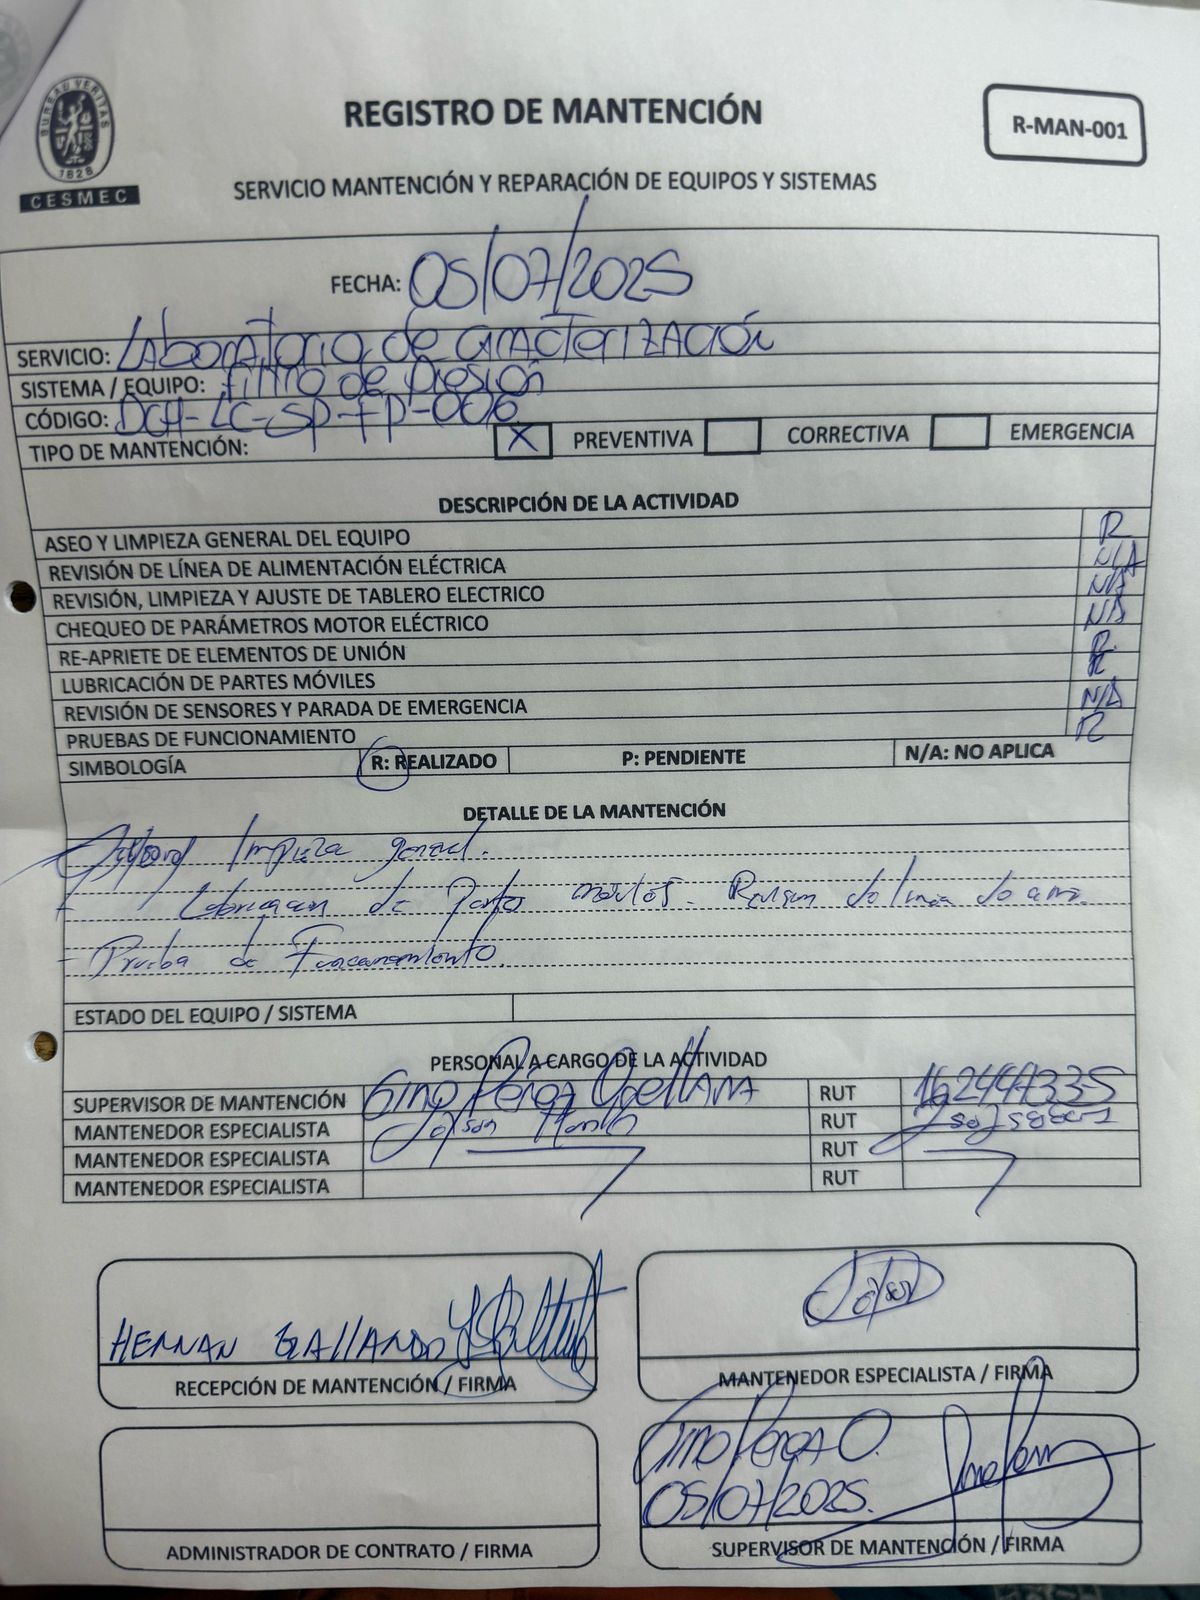 BUREAU VERITAS
1828
CESMEC
REGISTRO DE MANTENCIÓN
R-MAN-001
SERVICIO MANTENCIÓN Y REPARACIÓN DE EQUIPOS Y SISTEMAS
FECHA: 05/07/2025
SERVICIO: Laboratorio de caracterización
SISTEMA / EQUIPO: Filtro de Presión
CÓDIGO: DCH-LC-SP-FP-006
TIPO DE MANTENCIÓN: X PREVENTIVA CORRECTIVA EMERGENCIA
DESCRIPCIÓN DE LA ACTIVIDAD
ASEO Y LIMPIEZA GENERAL DEL EQUIPO R
REVISIÓN DE LÍNEA DE ALIMENTACIÓN ELÉCTRICA N/A
REVISIÓN, LIMPIEZA Y AJUSTE DE TABLERO ELECTRICO N/A
CHEQUEO DE PARÁMETROS MOTOR ELÉCTRICO N/A
RE-APRIETE DE ELEMENTOS DE UNIÓN R
LUBRICACIÓN DE PARTES MÓVILES R
REVISIÓN DE SENSORES Y PARADA DE EMERGENCIA N/A
PRUEBAS DE FUNCIONAMIENTO R
SIMBOLOGÍA R: REALIZADO P: PENDIENTE N/A: NO APLICA
DETALLE DE LA MANTENCIÓN
limpieza general.
Lubricacion de Partes moviles. Revision de linea de aire.
- Prueba de Funcionamiento.
ESTADO DEL EQUIPO / SISTEMA
PERSONAL A CARGO DE LA ACTIVIDAD
SUPERVISOR DE MANTENCIÓN Gino Pérez Orellana RUT
MANTENEDOR ESPECIALISTA RUT
MANTENEDOR ESPECIALISTA RUT
MANTENEDOR ESPECIALISTA RUT
HERNAN GALLARDO
RECEPCIÓN DE MANTENCIÓN / FIRMA
MANTENEDOR ESPECIALISTA / FIRMA
Gino Perez O.
05/07/2025.
ADMINISTRADOR DE CONTRATO / FIRMA
SUPERVISOR DE MANTENCIÓN / FIRMA